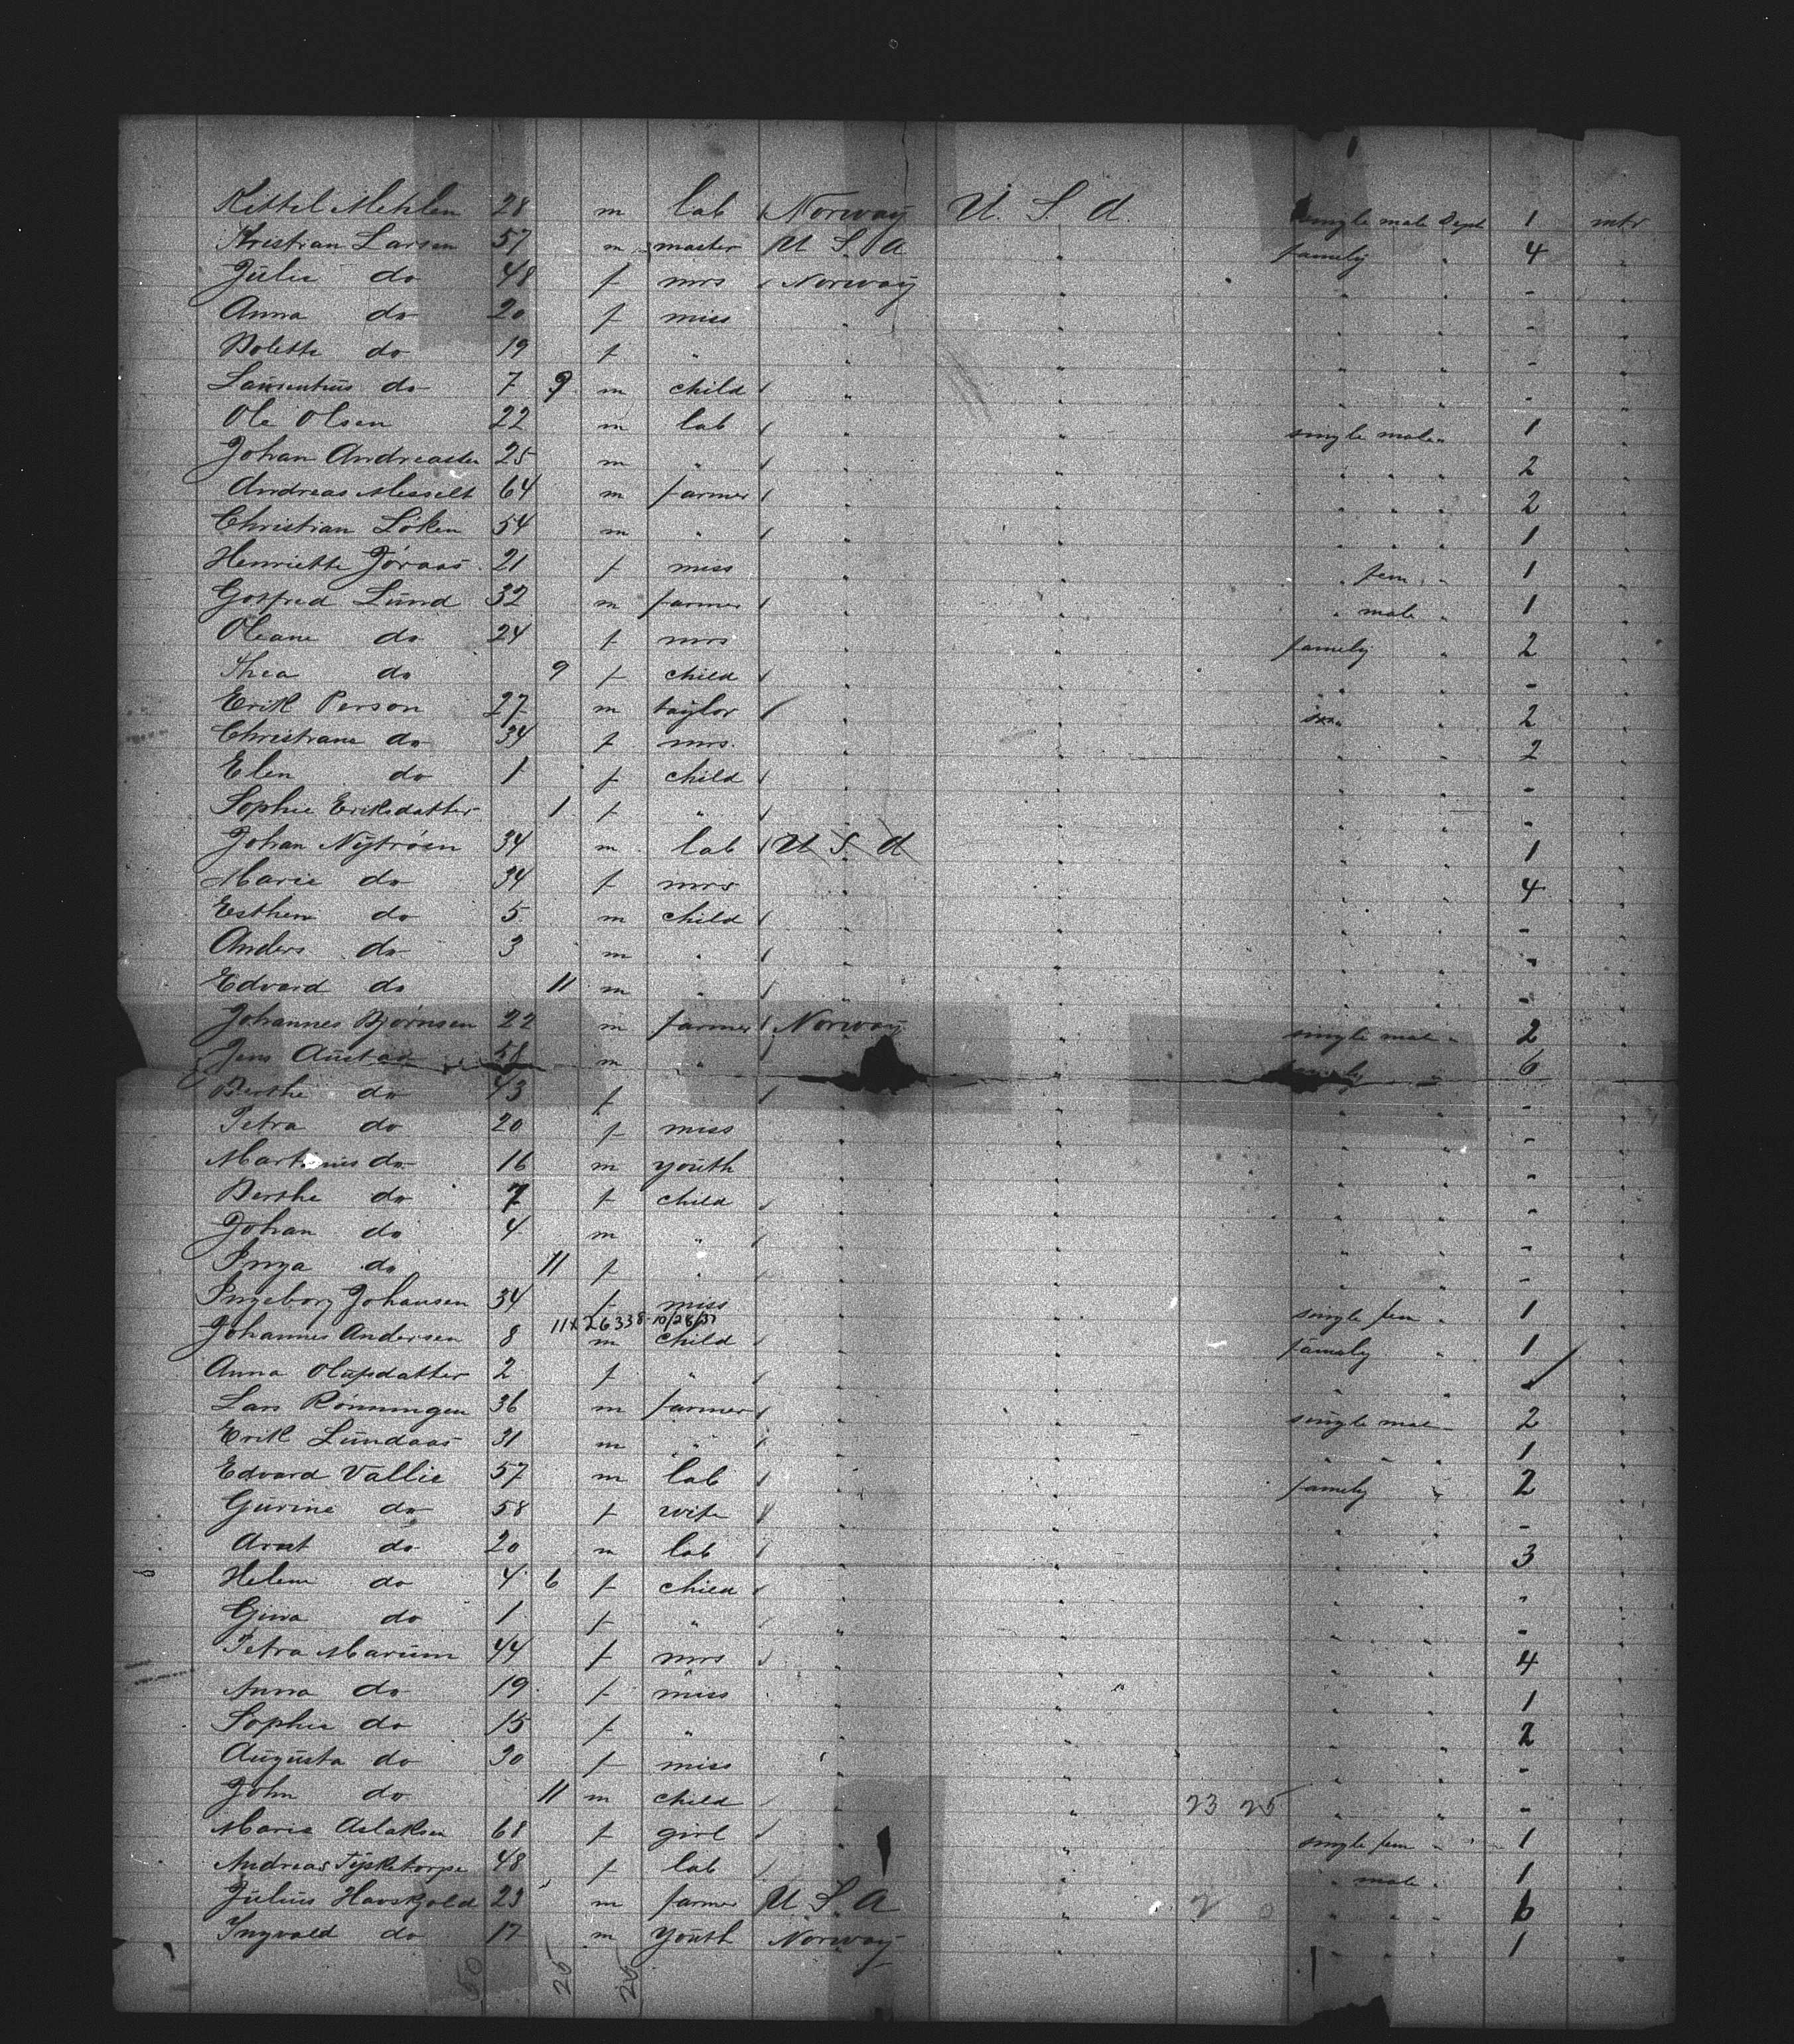 Kittel Mehlen 28 m lab Norway U. S. A. single male Dept 1 mtr
Kristian Larsen 57 m master U S. A family " 4 "
Julie do 48 f mrs Norway " " " - "
Anna do 20 f miss " " " " - "
Bolette do 19 f " " " " " - "
Laurentius do 7 9 m child " " " " - "
Ole Olsen 22 m lab " " single male " 1 "
Johan Andreassen 25 m " " " " " " 2 "
Andreas Messelt 64 m farmer " " " " " 2 "
Christian Löken 54 m " " " " " " 1 "
Henriette Joraas 21 f miss " " " fem " 1 "
Gotfred Lund 32 m farmer " " " male " 1 "
Oleane do 24 f mrs " " family " 2 "
Thea do 9 f child " " " " - "
Erik Person 27 m taylor " " " 2 "
Christiane do 34 f mrs. " " " " 2 "
Elen do 1 f child " " " " - "
Sophie Eriksdatter 1 f " " " " " - "
Johan Nytröen 34 m lab U S A " " " 1 "
Marie do 34 f mrs " " " " 4 "
Esthen do 5 m child " " " " - "
Anders do 3 m " " " " " - "
Edvard do 11 m " " " " " - "
Johannes Björnsen 22 m farmer Norway " single male " 2 "
Jens Austad 58 m " " 6 "
Berthe do 43 f " " " " - "
Petra do 20 f miss " " " " - "
Martinus do 16 m youth " " " " - "
Berthe do 7 f child " " " " - "
Johan do 4 m " " " " " - "
Inga do 11 f " " " " " - "
Ingeborg Johansen 34 f miss " " single fem " 1 "
11X26338-10/28/37
Johannes Andersen 8 m child " " family " 1 "
Anna Olufsdatter 2 f " " " " " "
Lars Rönningen 36 m farmer " " single male " 2 "
Erik Lundaas 31 m " " " " " " 1 "
Edvard Vallie 57 m lab " " family " 2 "
Gurine do 58 f wife " " " " - "
do 20 m lab " " " " 3 "
Helene do 4 6 f child " " " " - "
Gina do 1 f " " " " " - "
Petra Marum 44 f mrs " " " " 4 "
Anna do 19 f miss " " " " 1 "
Sophie do 15 f " " " " " 2 "
Augusta do 30 f miss " " " " - "
John do 11 m child " " 23 25 " " - "
Marie Aslaksen 68 f girl " single fem " 1 "
Andreas 48 f lab " " male " 1 "
Julius Havskjold 23 m farmer U. S. A " 2 0 " " " 6 "
Ingvald do 17 m youth Norway " " " " 1 "
50 25 25